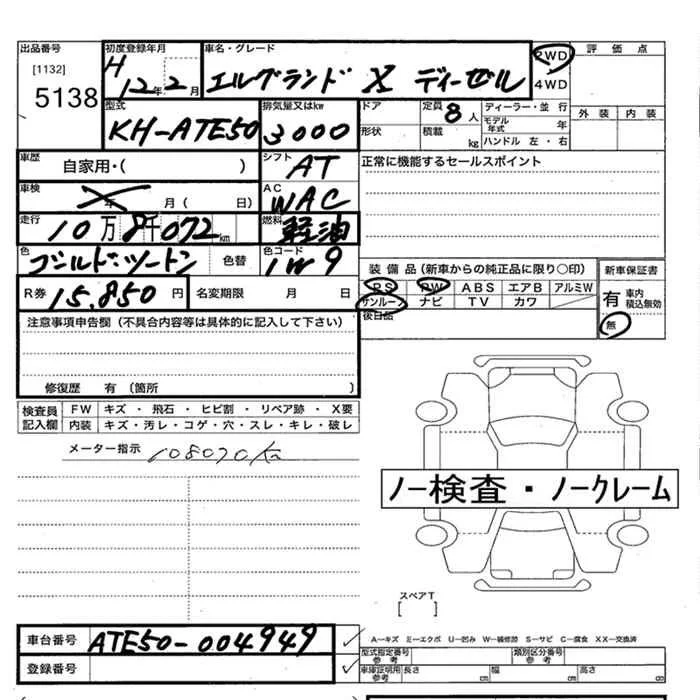 出品番号 初度登録年月 車名・グレード 2WD 評価点
[1132] H 12年2月 エルグランド X ディーゼル 4WD
5138 型式 排気量又はkw ドア 定員 8人 ディーラー・並行 外装 内装
KH-ATE50 3000 形状 積載 kg モデル年式 年
ハンドル 左・右
車歴 自家用・( ) シフト AT 正常に機能するセールスポイント
車検 年 月( 日) AC WAC
走行 10万8千072km 燃料 軽油
色 ゴールドツートン 色替 色コード 1W9 装備品(新車からの純正品に限り○印) 新車保証書
R券 15,850円 名変期限 月 日 PS PW ABS エアB アルミW 有 車内積込無効
サンルーフ ナビ TV カワ 無
注意事項申告欄(不具合内容等は具体的に記入して下さい) 後日品
修復歴 有(箇所 )
検査員記入欄 FW キズ・飛石・ヒビ割・リペア跡・X要
内装 キズ・汚レ・コゲ・穴・スレ・キレ・破レ
メーター指示 108070km
ノー検査・ノークレーム
スペアT
[ ]
車台番号 ATE50-004949 A―キズ E―エクボ U―凹み W―補修跡 S―サビ C―腐食 XX―交換済
型式指定番号 参考 類別区分番号 参考
登録番号 車庫証明用参考 長さ cm 幅 cm 高さ cm